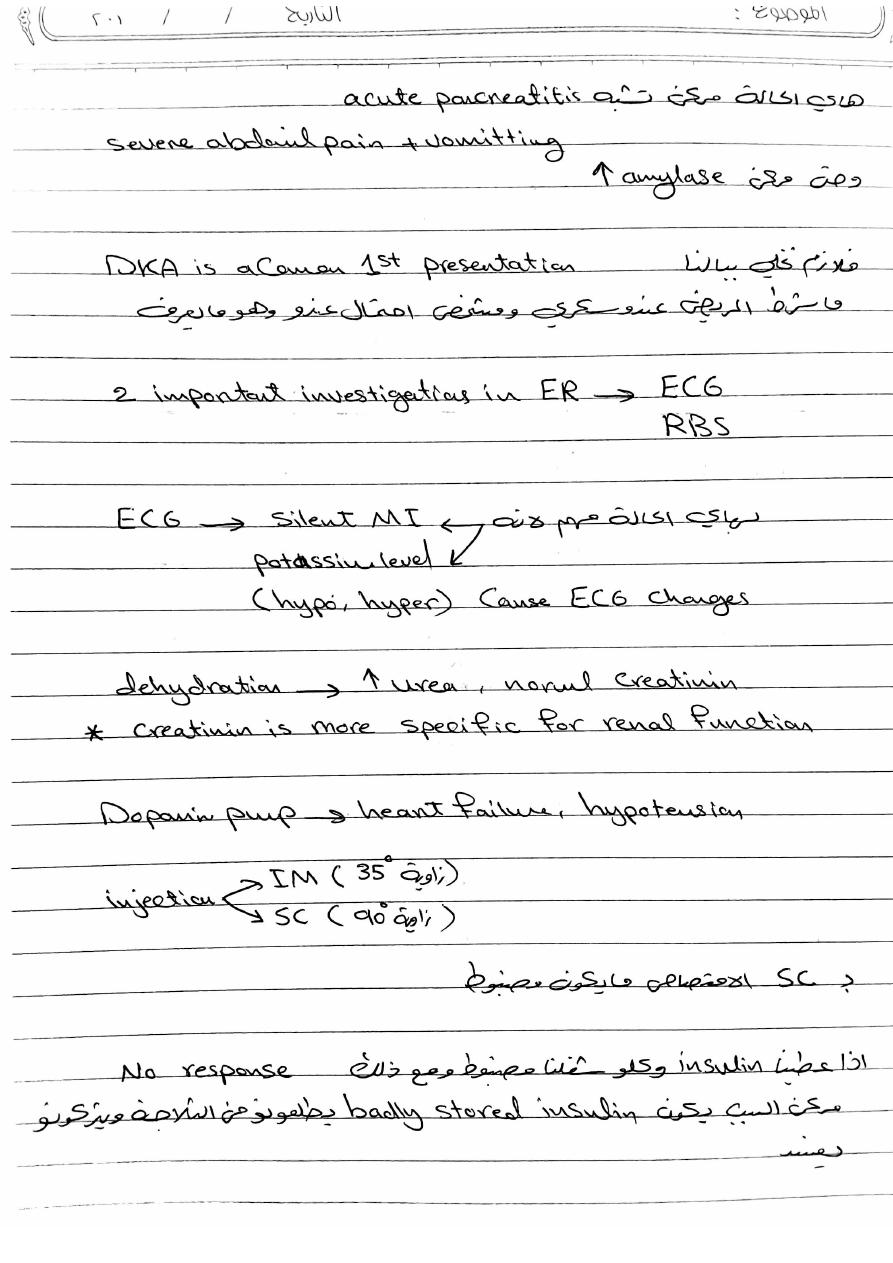 الموضوع : التاريخ / / ٢٠١
هاي الحالة ممكن تشبه acute pancreatitis
severe abdominl pain + vomitting
وحتى ممكن amylase ↑
فلازم نخلي ببالنا DKA is a Comon 1st presentation
ما شرط المريض عندو سكري ومشخص احتمال عندو وهو ما بعرف
2 important investigations in ER → ECG
RBS
ECG → Silent MI ← بهاي الحالة مهم لانه
potassium level ↙
(hypo, hyper) Cause ECG changes
dehydration → ↑ urea, normal creatinin
* creatinin is more specific for renal function
Dopamin pump → heart failure, hypotension
injection → IM ( زاوية 35°)
→ SC ( زاوية 90°)
بـ SC الامتصاص ما يكون مضبوط
اذا عطينا insulin وكلو شغلنا مضبوط ومع ذلك No response
ممكن السبب يكون badly stored insulin بطلعونو من الثلاجة وبتركونو